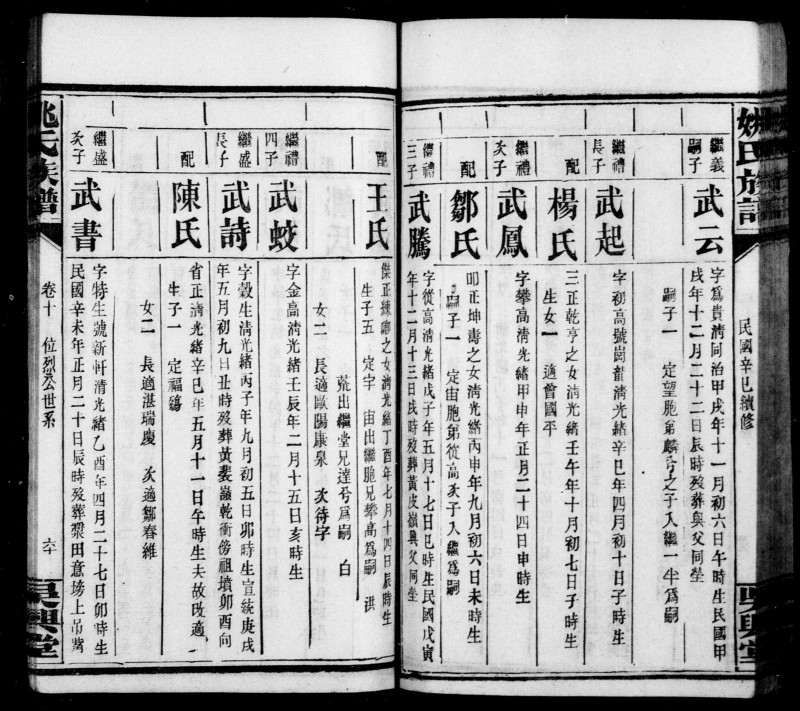 姚氏族譜
民國辛巳續修
吳興堂
繼義
嗣子
武云
字為貴淸同治甲戌年十一月初六日午時生民國甲
戌年十二月二十二日辰時歿葬與父同塋
嗣子一 定望胞弟麟兮之子入繼一半為嗣
繼禮
長子
武起
字初高號崗龍淸光緒辛巳年四月初十日子時生
配
楊氏
三正乾亨之女淸光緒壬午年十月初七日子時生
生女一 適曾國平
繼禮
次子
武鳳
字攀高淸光緒甲申年正月二十四日申時生
配
鄒氏
明正坤壽之女淸光緒丙申年九月初六日未時生
嗣子一 定宙胞弟從高次子入繼為嗣
繼禮
三子
武騰
字從高淸光緒戊子年五月十七日巳時生民國戊寅
年十二月十三日戌時歿葬黃皮嶺與父同塋
配
王氏
傑正練卿之女淸光緒丁酉年七月十四日辰時生
生子五 定宇 宙出繼胞兄攀高為嗣 洪
荒出繼堂兄達兮為嗣 白
女二 長適歐陽康泉 次待字
繼禮
四子
武蛟
字金高淸光緒壬辰年二月十五日亥時生
繼盛
長子
武詩
字毅生淸光緒丙子年九月初五日卯時生宣統庚戌
年五月初九日丑時歿葬黃婁嶺乾衝傍祖墳卯酉向
配
陳氏
省正淸光緒辛巳年五月十一日午時生夫故改適
生子一 定福
女二 長適湛瑞慶 次適鄒春維
繼盛
次子
武書
字特生號新軒淸光緒乙酉年四月二十七日卯時生
民國辛未年正月二十日辰時歿葬梁田意塝上吊
姚氏族譜
卷十 位烈公世系 六十
吳興堂